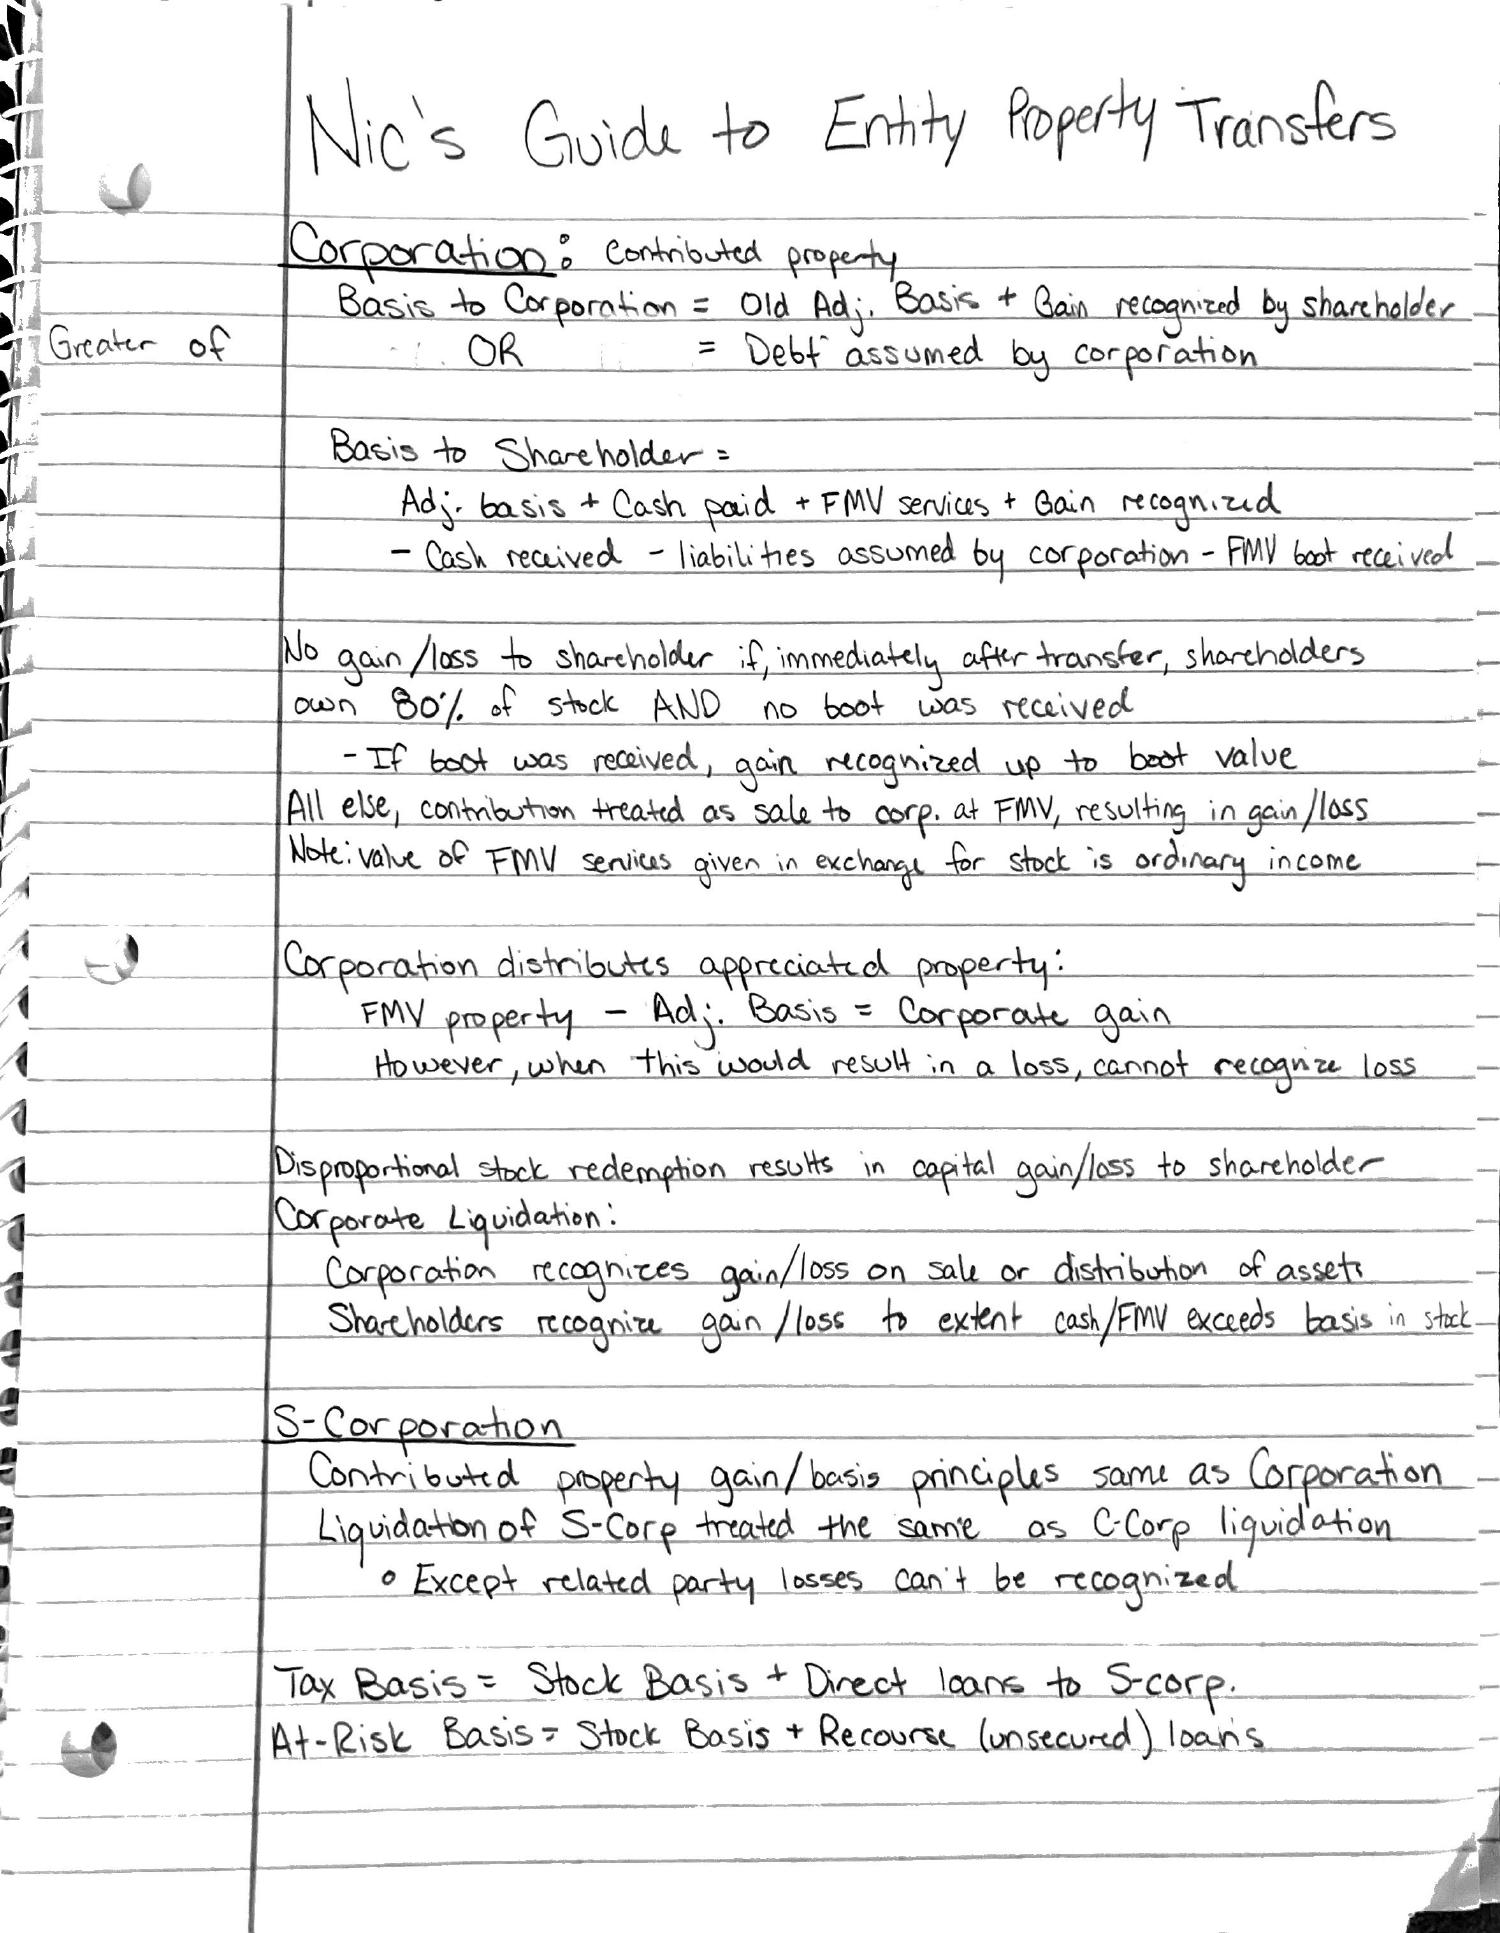 Nic's Guide to Entity Property Transfers
Corporation: Contributed property
Basis to Corporation = Old Adj. Basis + Gain recognized by shareholder
Greater of OR = Debt assumed by corporation
Basis to Shareholder =
Adj. basis + Cash paid + FMV services + Gain recognized
- Cash received - liabilities assumed by corporation - FMV boot received
No gain/loss to shareholder if, immediately after transfer, shareholders
own 80% of stock AND no boot was received
- If boot was received, gain recognized up to boot value
All else, contribution treated as sale to corp. at FMV, resulting in gain/loss
Note: value of FMV services given in exchange for stock is ordinary income
Corporation distributes appreciated property:
FMV property - Adj. Basis = Corporate gain
However, when this would result in a loss, cannot recognize loss
Disproportional stock redemption results in capital gain/loss to shareholder
Corporate Liquidation:
Corporation recognizes gain/loss on sale or distribution of assets
Shareholders recognize gain/loss to extent cash/FMV exceeds basis in stock
S-Corporation
Contributed property gain/basis principles same as Corporation
Liquidation of S-Corp treated the same as C-Corp liquidation
• Except related party losses can't be recognized
Tax Basis = Stock Basis + Direct loans to S-corp.
At-Risk Basis = Stock Basis + Recourse (unsecured) loans